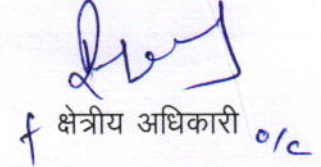 f क्षेत्रीय अधिकारी o/c